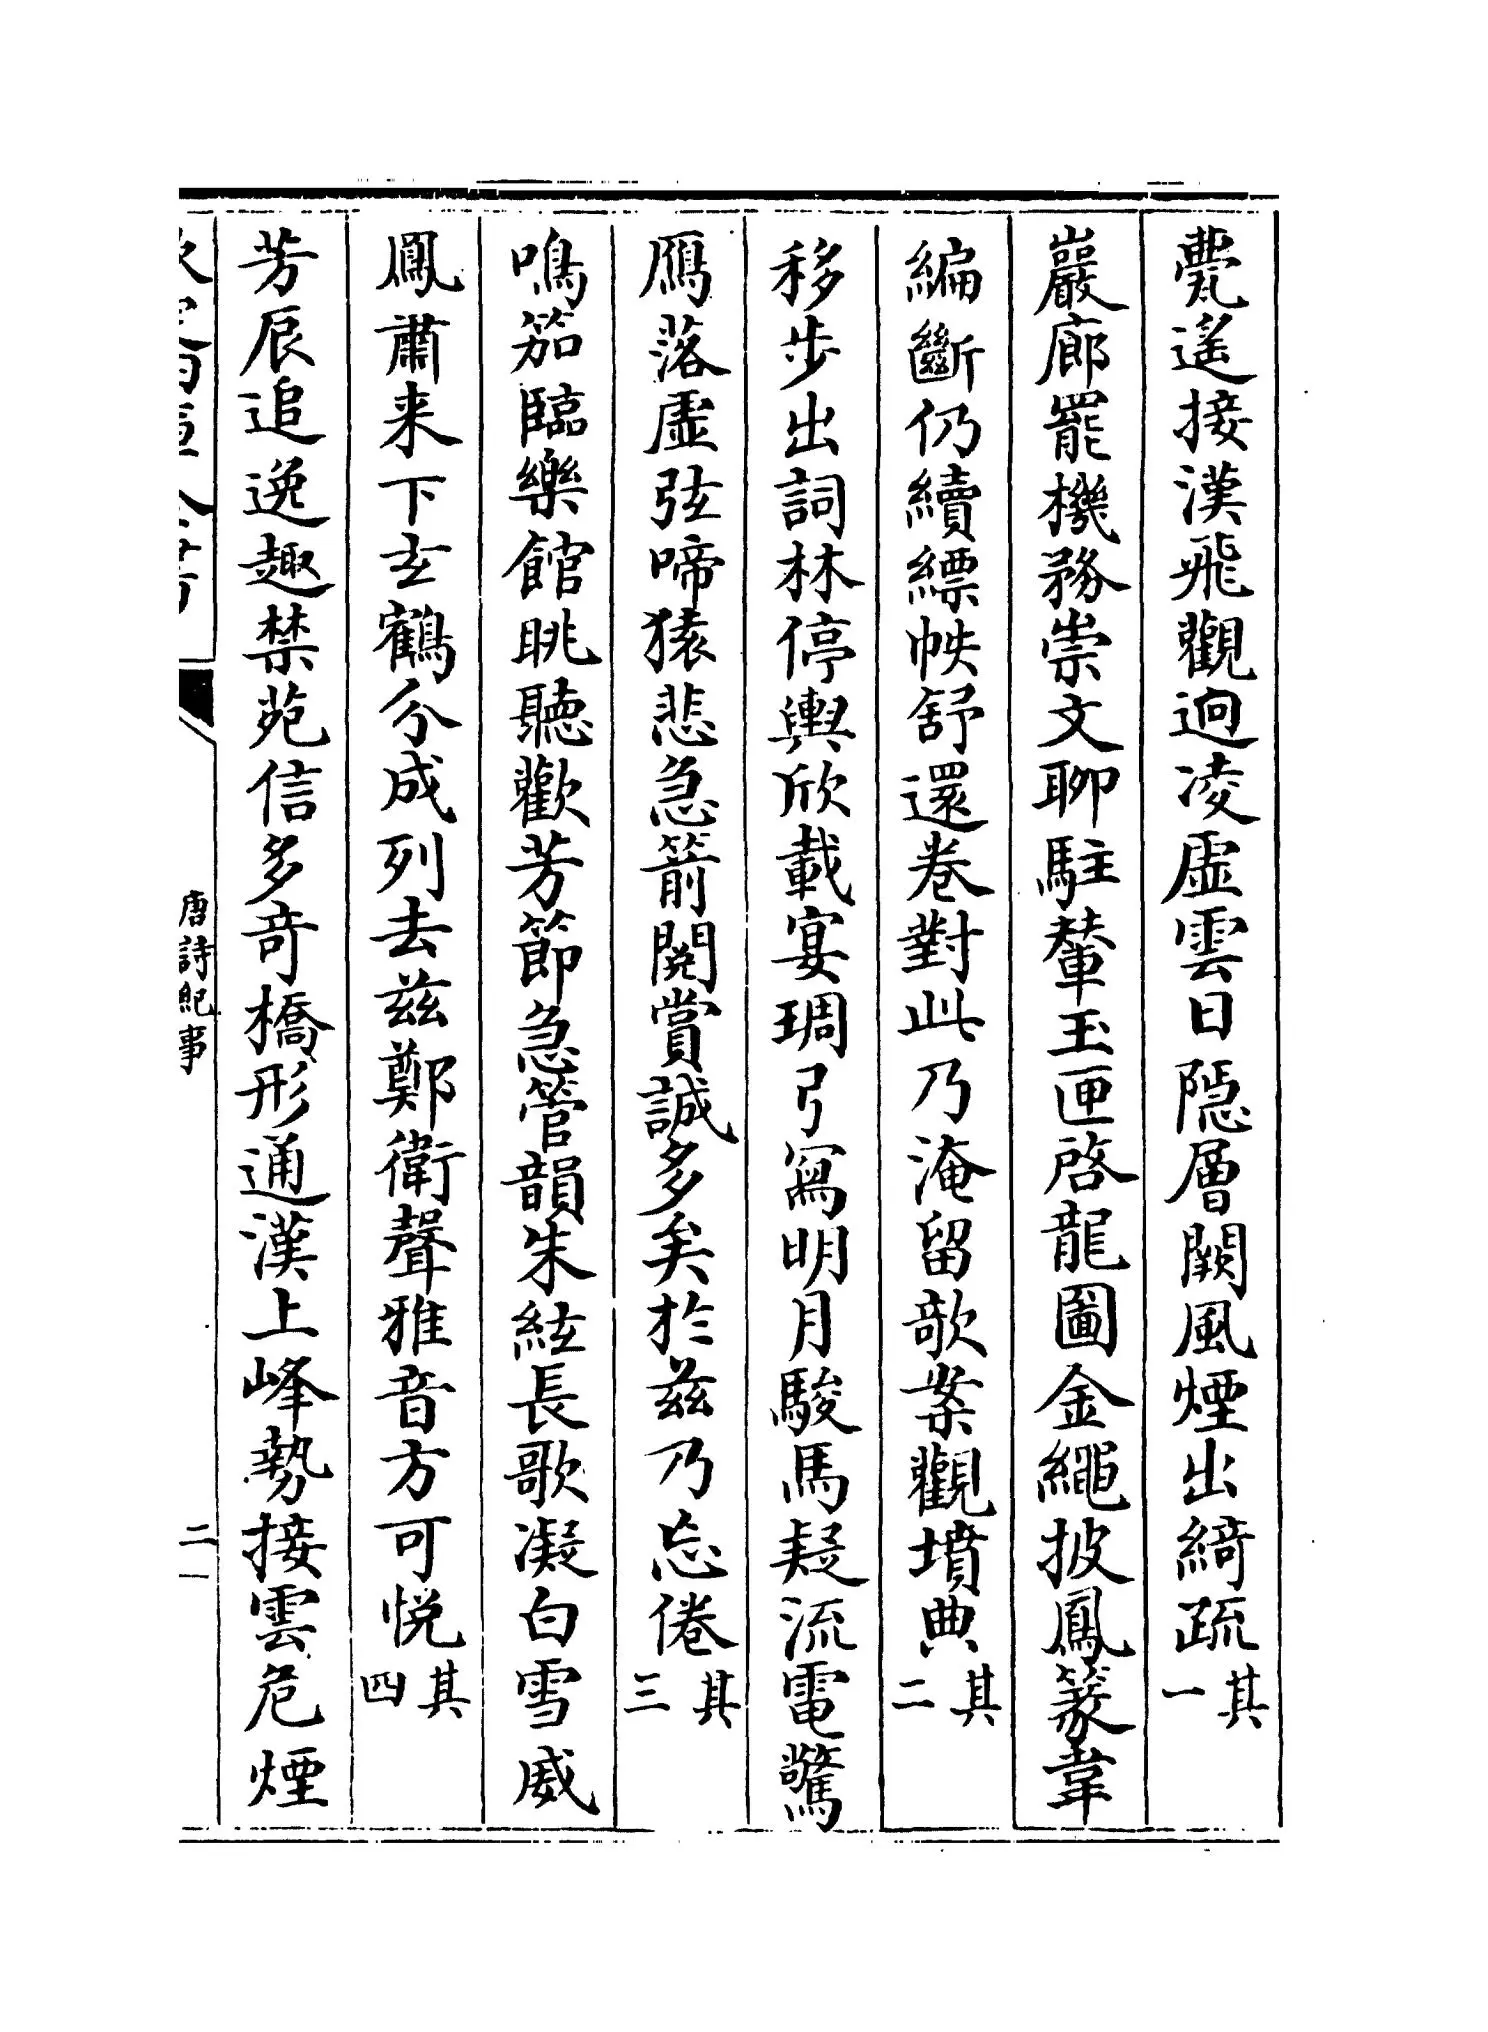 甍遙接漢飛觀迥凌虛雲日隠層闕風煙出綺疏其一
巖廊罷機務崇文聊駐輦玉匣啓龍圖金繩披鳳篆韋
編斷仍續縹帙舒還卷對此乃淹留欹案觀墳典其二
移步出詞林停輿欣載宴琱弓寫明月駿馬疑流電驚
鴈落虛弦啼猿悲急箭閱賞誠多矣於兹乃忘倦其三
鳴笳臨樂館眺聽歡芳節急管韻朱絃長歌凝白雪威
鳳肅来下玄鶴分成列去兹鄭衛聲雅音方可悅其四
芳辰追逸趣禁苑信多奇橋形通漢上峰勢接雲危煙
唐詩紀事
二